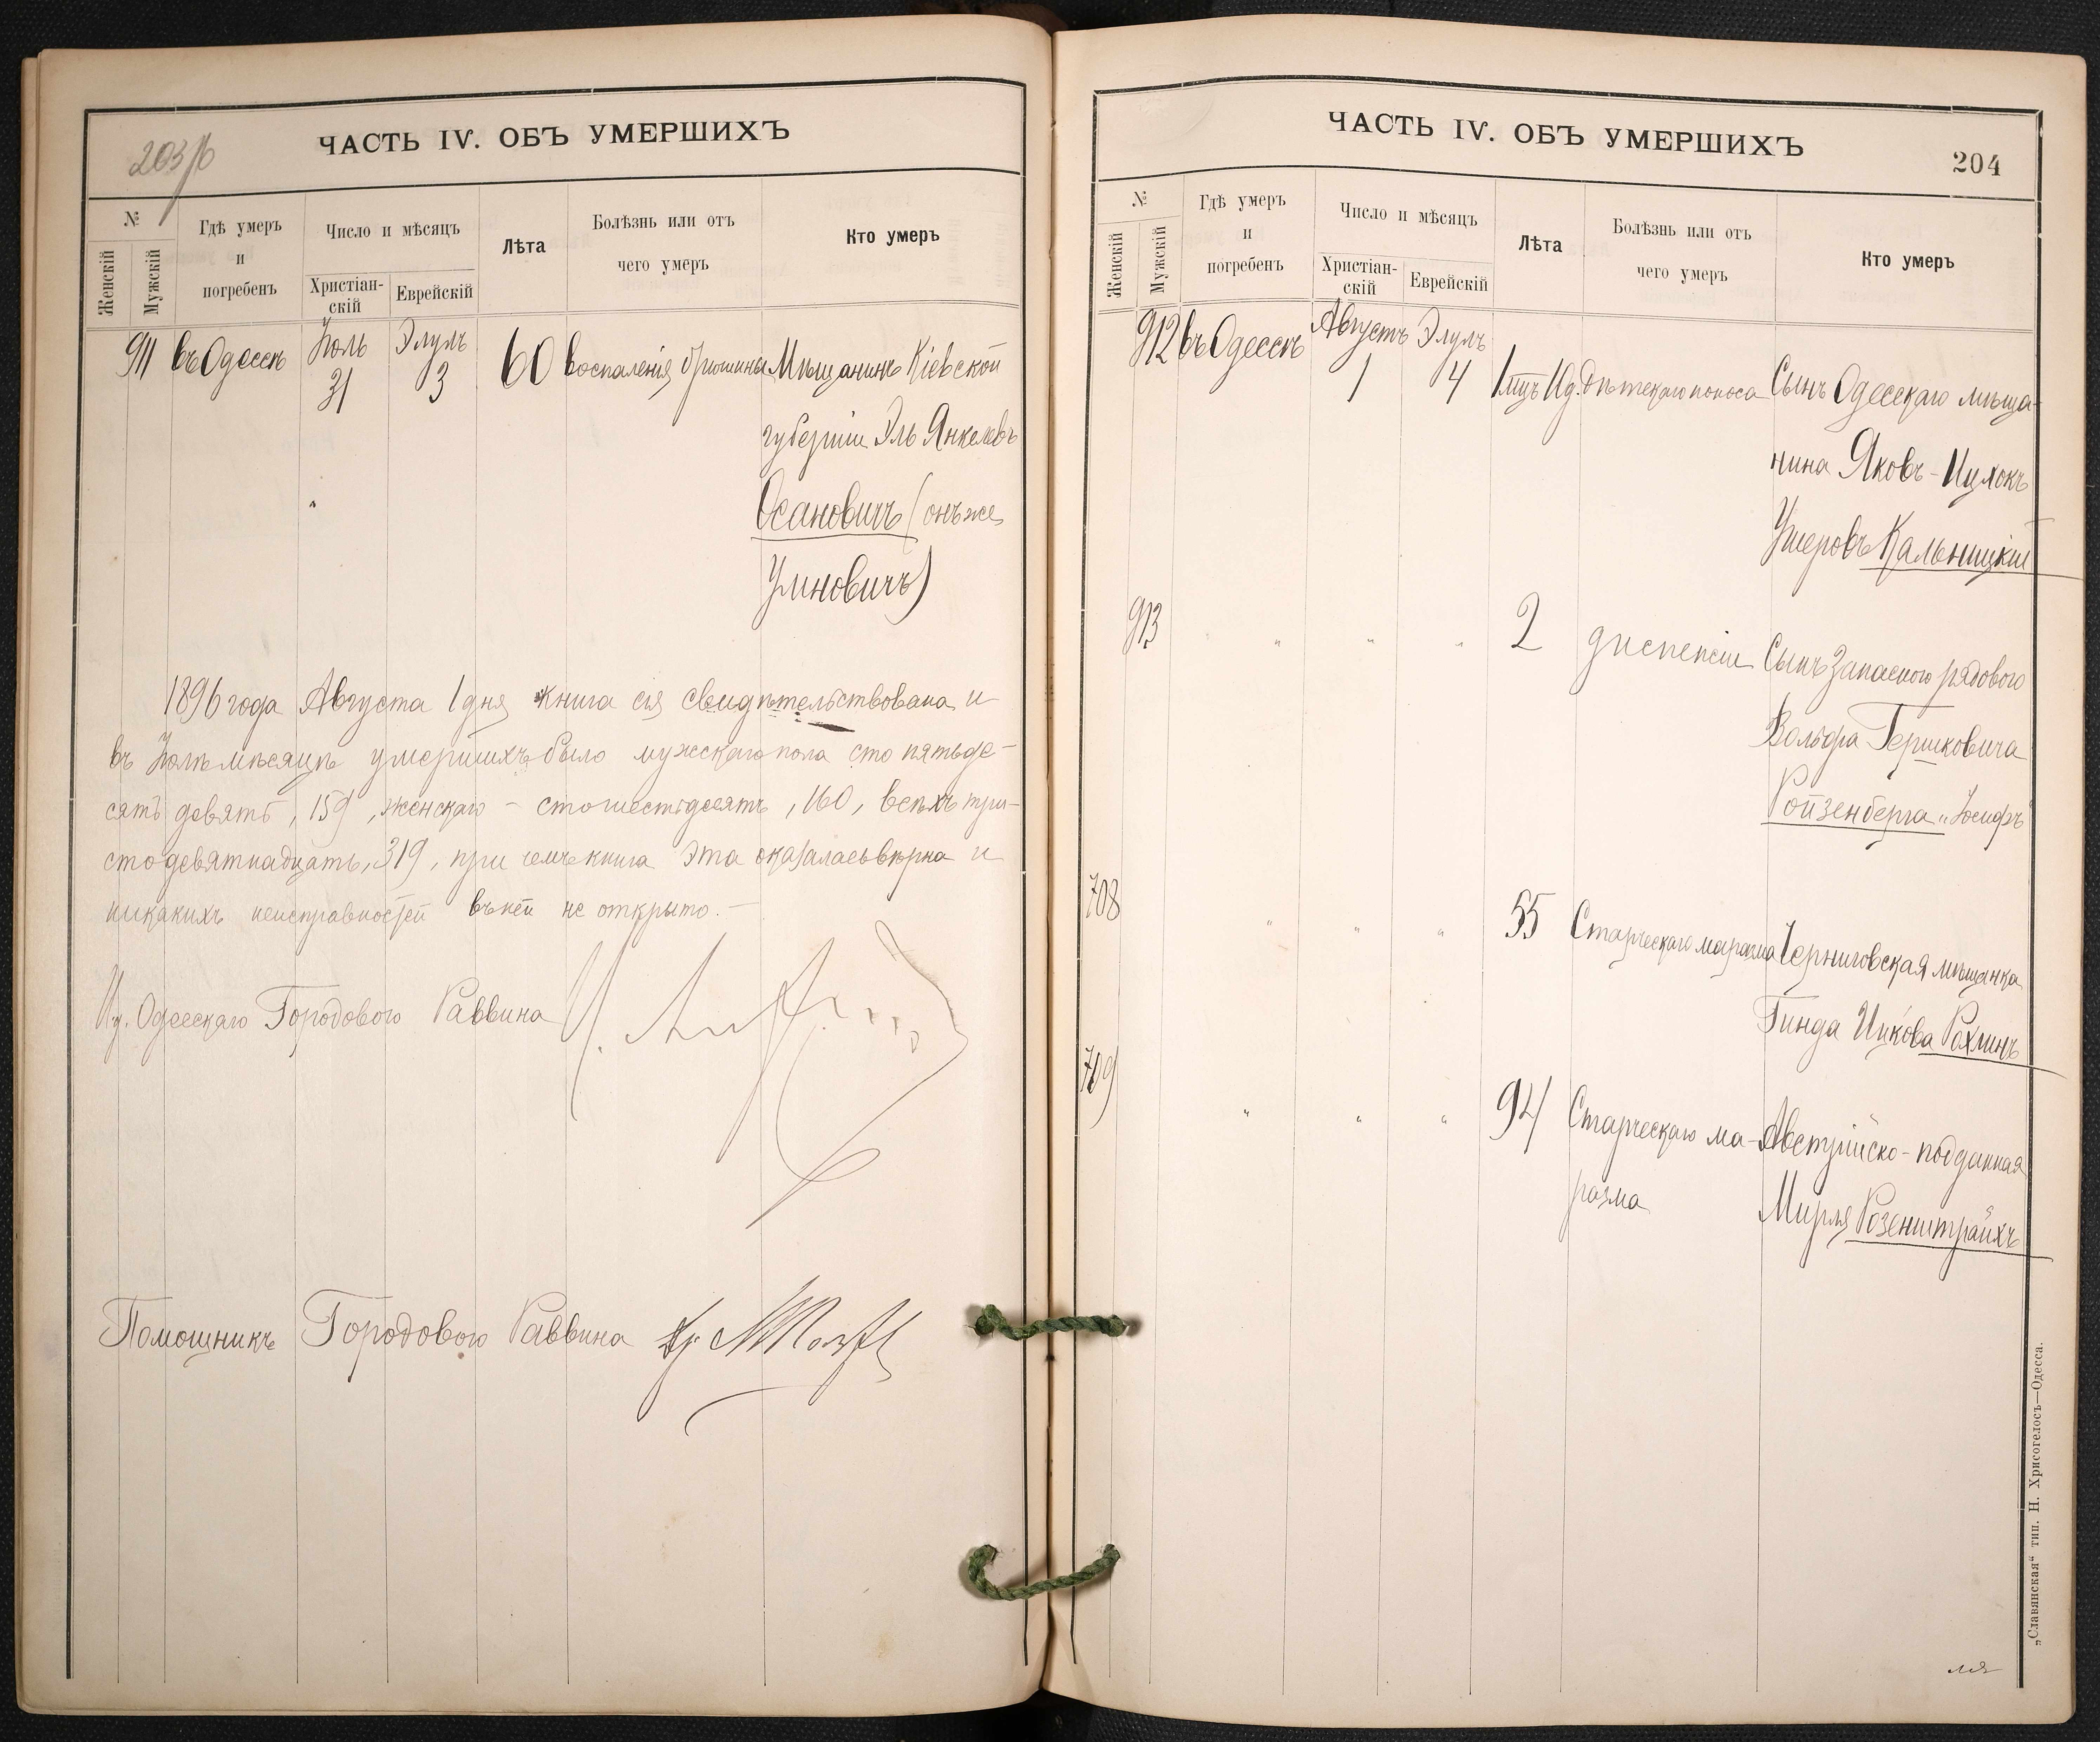 203/б
ЧАСТЬ IV. ОБЪ УМЕРШИХЪ
№
Женскій
Мужскій
Гдѣ умеръ
и
погребенъ
Число и мѣсяцъ
Христіан-
скій
Еврейскій
Лѣта
Болѣзнь или отъ
чего умеръ
Кто умеръ
911 въ Одессѣ Іюль 31 Элулъ 3 60 воспаленія брюшины Мѣщанинъ Кіевской
губерніи Эль Янкелевъ
Осановичъ (онъ же
Умновичъ)
1896 года Августа 1 дня книга сія свидѣтельствована и
въ Іюлѣ мѣсяцѣ умершихъ было мужскаго пола сто пятьде-
сятъ девять, 159, женскаго - сто шестьдесятъ, 160, всѣхъ три-
ста девятнадцать, 319, при чемъ книга эта оказалась вѣрна и
никакихъ неисправностей въ ней не открыто. —
И.д. Одесскаго Городового Раввина
Помощникъ Городового Раввина
ЧАСТЬ IV. ОБЪ УМЕРШИХЪ
204
№
Женскій
Мужскій
Гдѣ умеръ
и
погребенъ
Число и мѣсяцъ
Христіан-
скій
Еврейскій
Лѣта
Болѣзнь или отъ
чего умеръ
Кто умеръ
912 въ Одессѣ Августъ 1 Элулъ 4 1 мцъ 11 д. Дѣтскаго поноса Сынъ Одесскаго мѣща-
нина Яковъ-Ицхокъ
Ушеровъ Кальницкій
913 " " " " 2 диспепсіи Сынъ Запасного рядового
Вольфа Гершковича
Ройзенберга „Іосифъ"
708 " " " 55 Старческаго маразма Черниговская мѣщанка
Гинда Ицкова Рохлинъ
709 " " " 94 Старческаго ма- Австрійско-подданная
разма Мирля Розенштрайхъ
„Славянская“ тип. Н. Хрисогелосъ—Одесса.